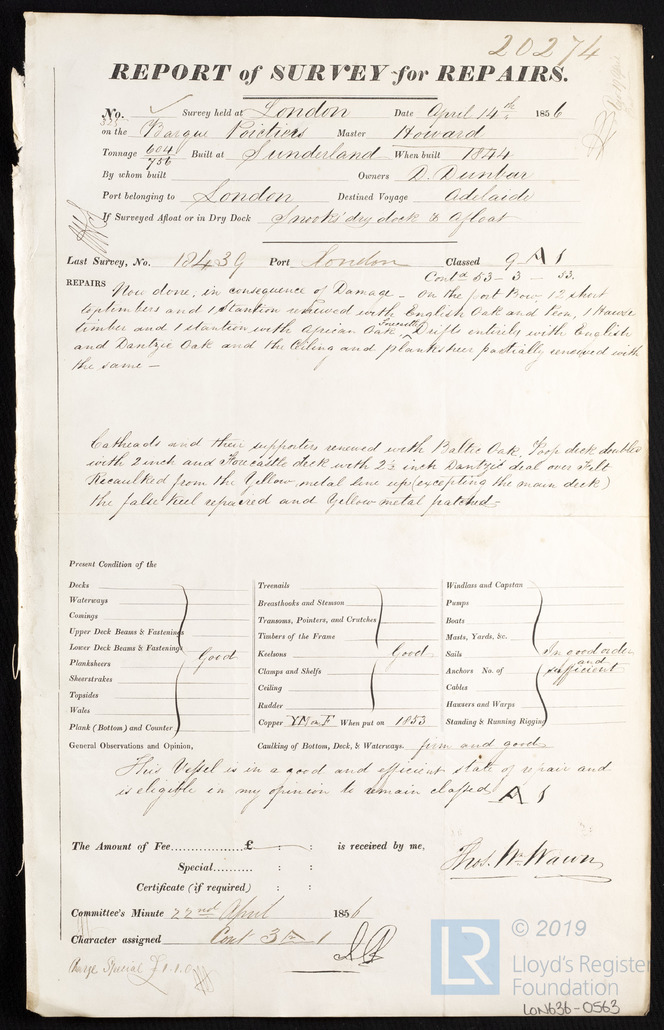 20274
REPORT of SURVEY for REPAIRS.
No. ✓ Survey held at London Date April 14th 1856
on the Barque Poictiers Master Howard
Tonnage 604/756 Built at Sunderland When built 1844
By whom built Owners D. Dunbar
Port belonging to London Destined Voyage Adelaide
If Surveyed Afloat or in Dry Dock Snooks dry dock & afloat
Last Survey, No. 18439 Port London Classed 9 A 1
Contd 53 - 3 - 53.
REPAIRS Now done, in consequence of Damage - On the port Bow, 12 short
toptimbers and 1 Stantion renewed with English Oak and Iron, 1 Hawse
timber and 1 stantion with African Oak, Forecastle Drifts entirely with English
and Dantzic Oak and the Ceiling and planksheer partially renewed with
the same -
Catheads and their supporters renewed with Baltic Oak, Poop deck doubled
with 2 inch and Forecastle deck with 2½ inch Dantzic deal over Felt
Recaulked from the Yellow metal line up (excepting the main deck)
the false keel repaired and Yellow metal patched -
Present Condition of the
Decks
Waterways
Comings
Upper Deck Beams & Fastenings
Lower Deck Beams & Fastenings
Planksheers
Good
Sheerstrakes
Topsides
Wales
Plank (Bottom) and Counter
Treenails
Breasthooks and Stemson
Transoms, Pointers, and Crutches
Timbers of the Frame
Keelsons
Good
Clamps and Shelfs
Ceiling
Rudder
Copper YM on F When put on 1853
Windlass and Capstan
Pumps
Boats
Masts, Yards, &c.
Sails
In good order
and
sufficient
Anchors No. of
Cables
Hawsers and Warps
Standing & Running Rigging
General Observations and Opinion, Caulking of Bottom, Deck, & Waterways. firm and good
This Vessel is in a good and efficient state of repair and
is eligible in my opinion to remain classed A 1
The Amount of Fee £ : : is received by me,
Special : :
Certificate (if required) : :
Thos. Wm Wawn
Committee's Minute 22nd April 1856
Character assigned Cont 3 A 1
Charge Special £1.1.0
LR
© 2019
Lloyd's Register
Foundation
LON636-0563